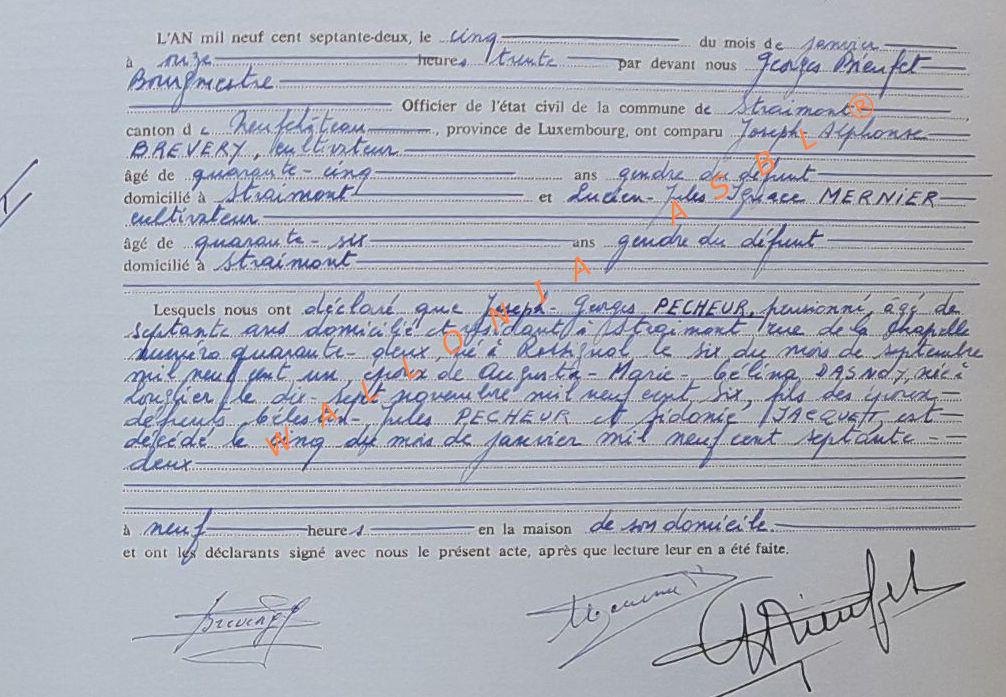 L'AN mil neuf cent septante-deux, le cinq du mois de janvier
à onze heures trente par devant nous Georges Bieufet
Bourgmestre
Officier de l'état civil de la commune de Straimont ®
canton de Neufchâteau, province de Luxembourg, ont comparu Joseph Alphonse
BREVERY, cultivateur
âgé de quarante-cinq ans gendre du défunt
domicilié à Straimont et Lucien-Jules Ignace MERNIER
cultivateur
âgé de quarante-six ans gendre du défunt
domicilié à Straimont
Lesquels nous ont déclaré que Joseph-Georges PECHEUR, pensionné, âgé de
septante ans domicilié et résidant à Straimont rue de la chapelle
numéro quarante-deux, né à Rossignol le six du mois de septembre
mil neuf cent un, époux de Augusta-Marie-Célina DASNOY, née à
Longlier le dix-sept novembre mil neuf cent six, fils des époux
défunts Célestin-Jules PECHEUR et Fidonie JACQUET est
décédé le cinq du mois de janvier mil neuf cent septante-
deux
à neuf heures en la maison de son domicile.
et ont les déclarants signé avec nous le présent acte, après que lecture leur en a été faite.
WALLONIA ASBL
Brevery